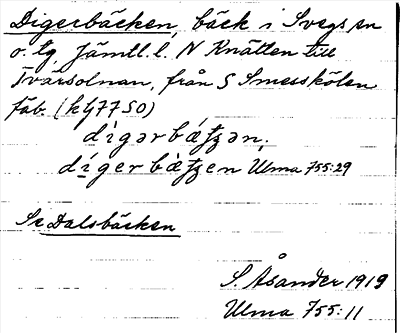 Digerbäcken, bäck i Svegs sn
o. tg Jämtl. l. N Knätten till
Tvärsolnan, från S Smesskölen
fäb. (kg 77 SO)
digərbæʈʂən,
digerbæʈʂen Ulma 755:29
Se Dalsbäcken
S. Åsander 1919
Ulma 755:11